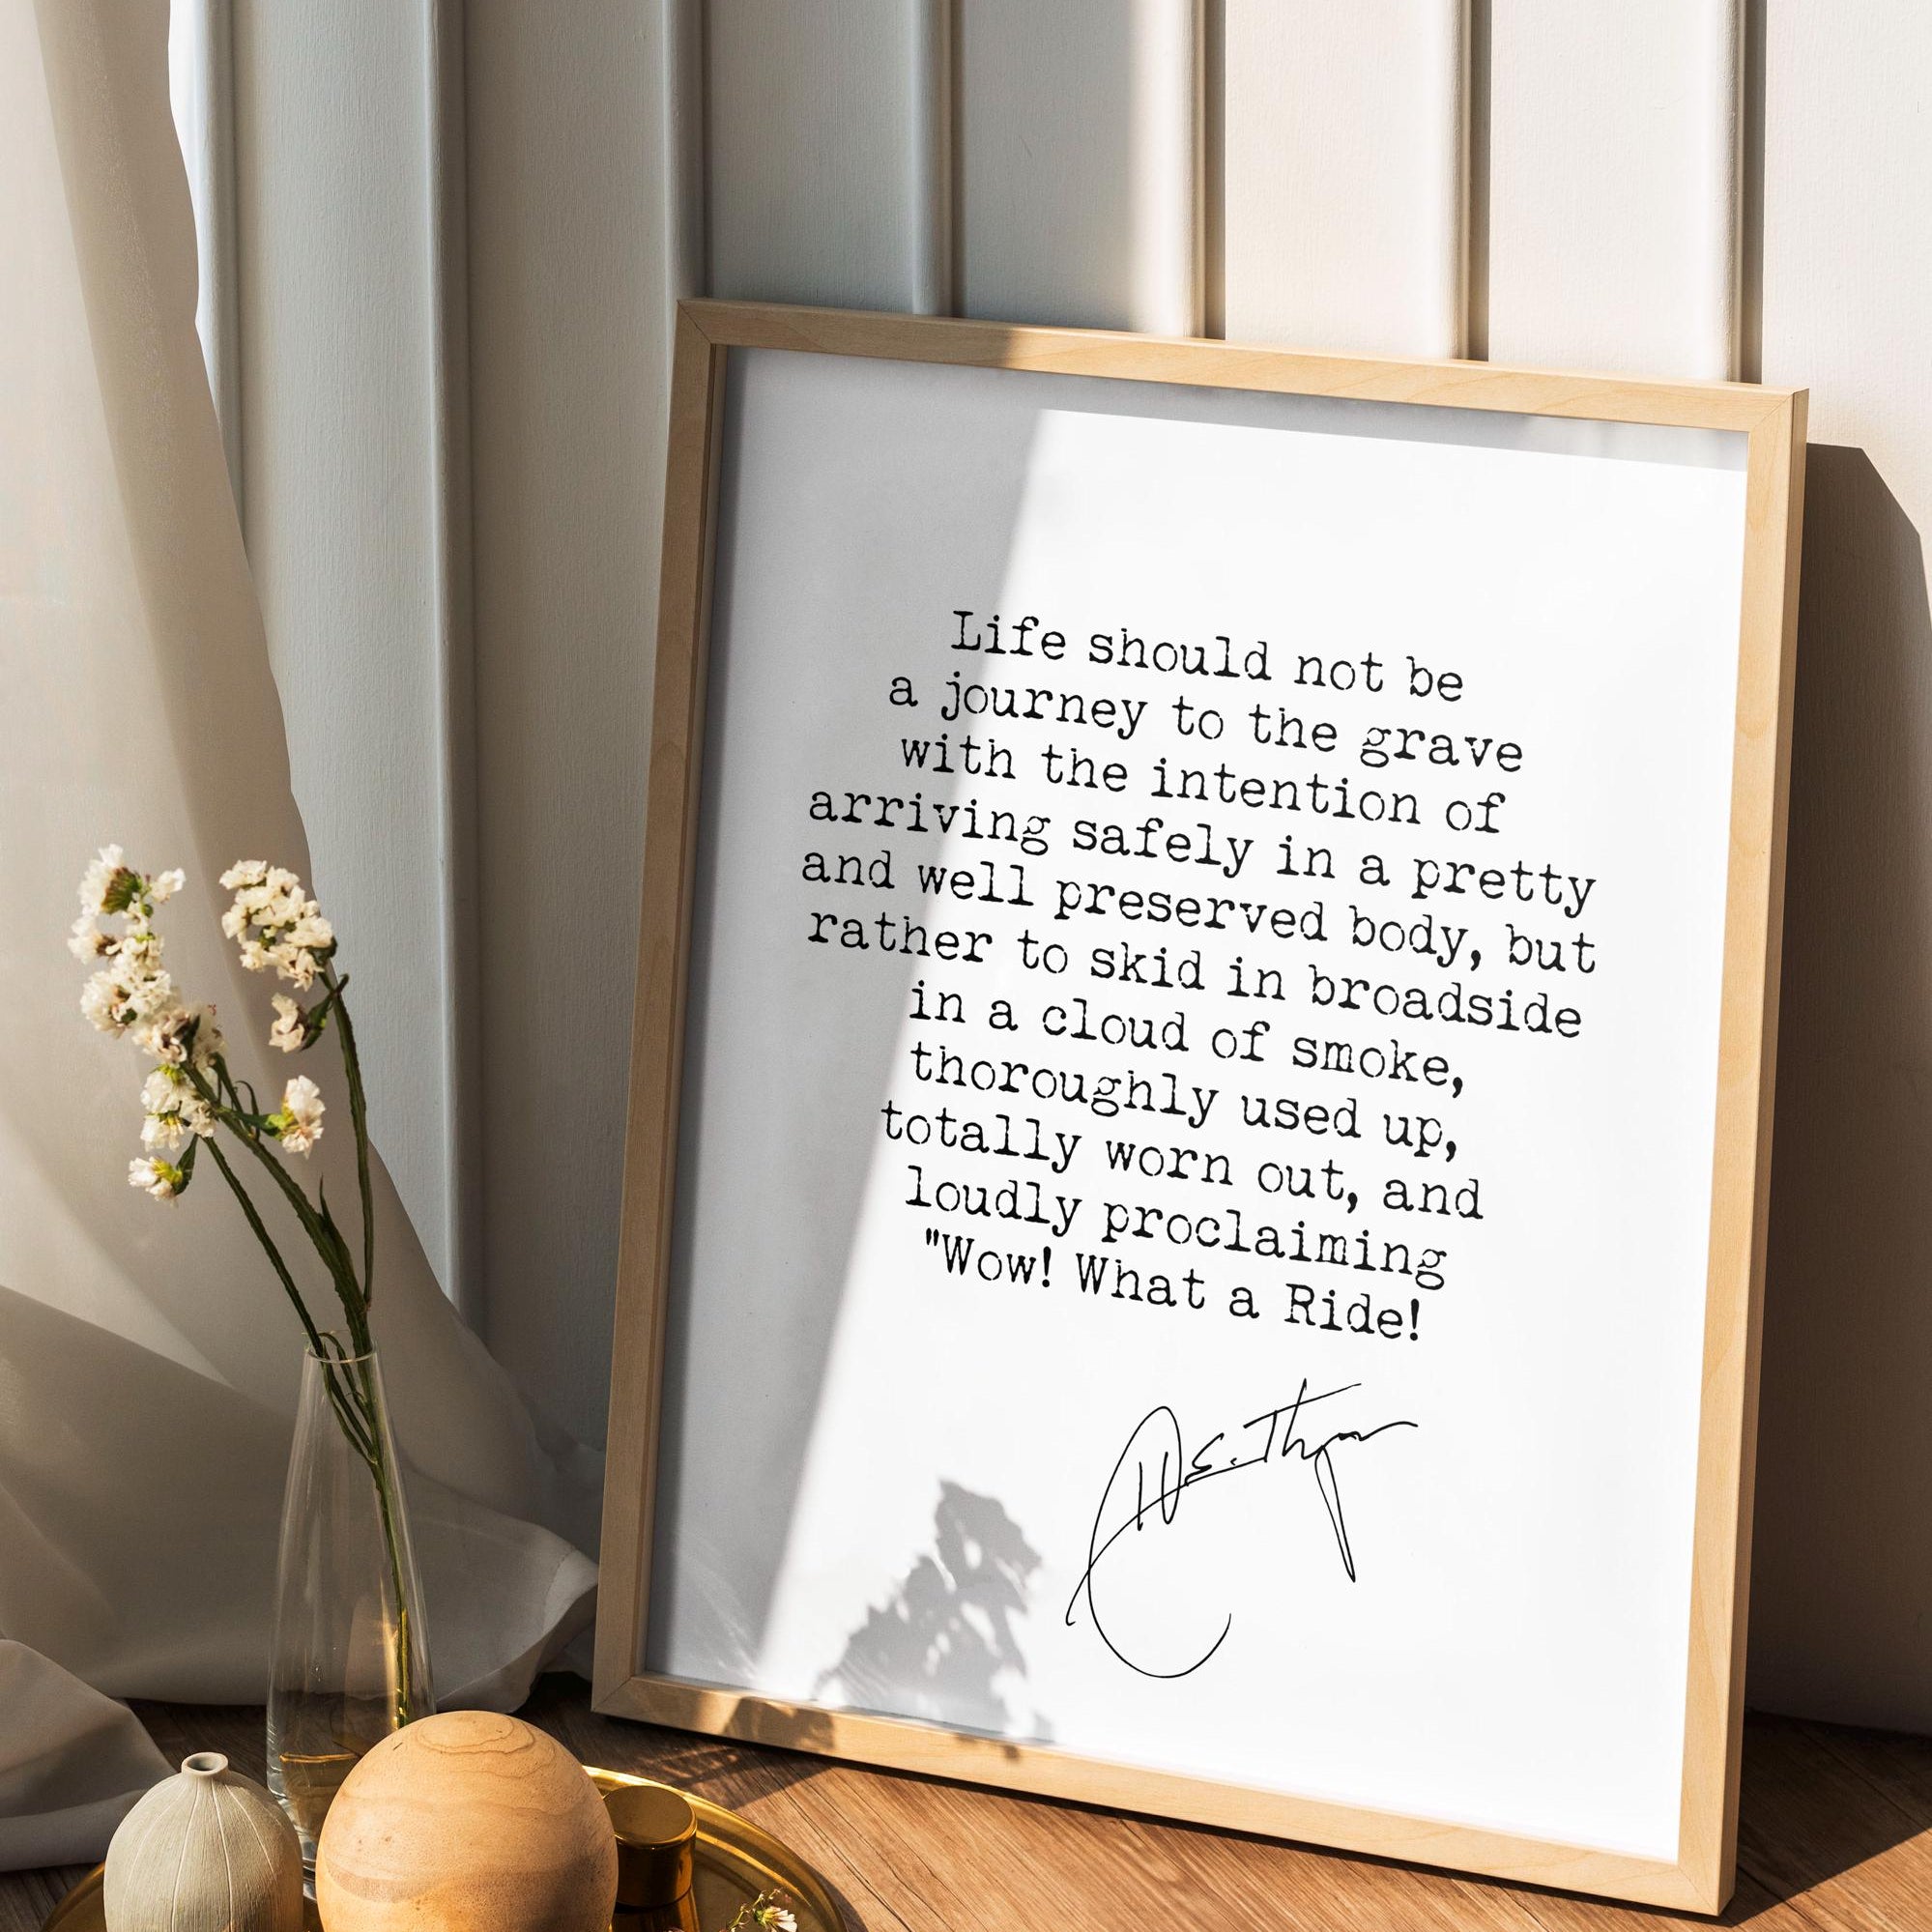 Life should not be
a journey to the grave
with the intention of
arriving safely in a pretty
and well preserved body, but
rather to skid in broadside
in a cloud of smoke,
thoroughly used up,
totally worn out, and
loudly proclaiming
"Wow! What a Ride!